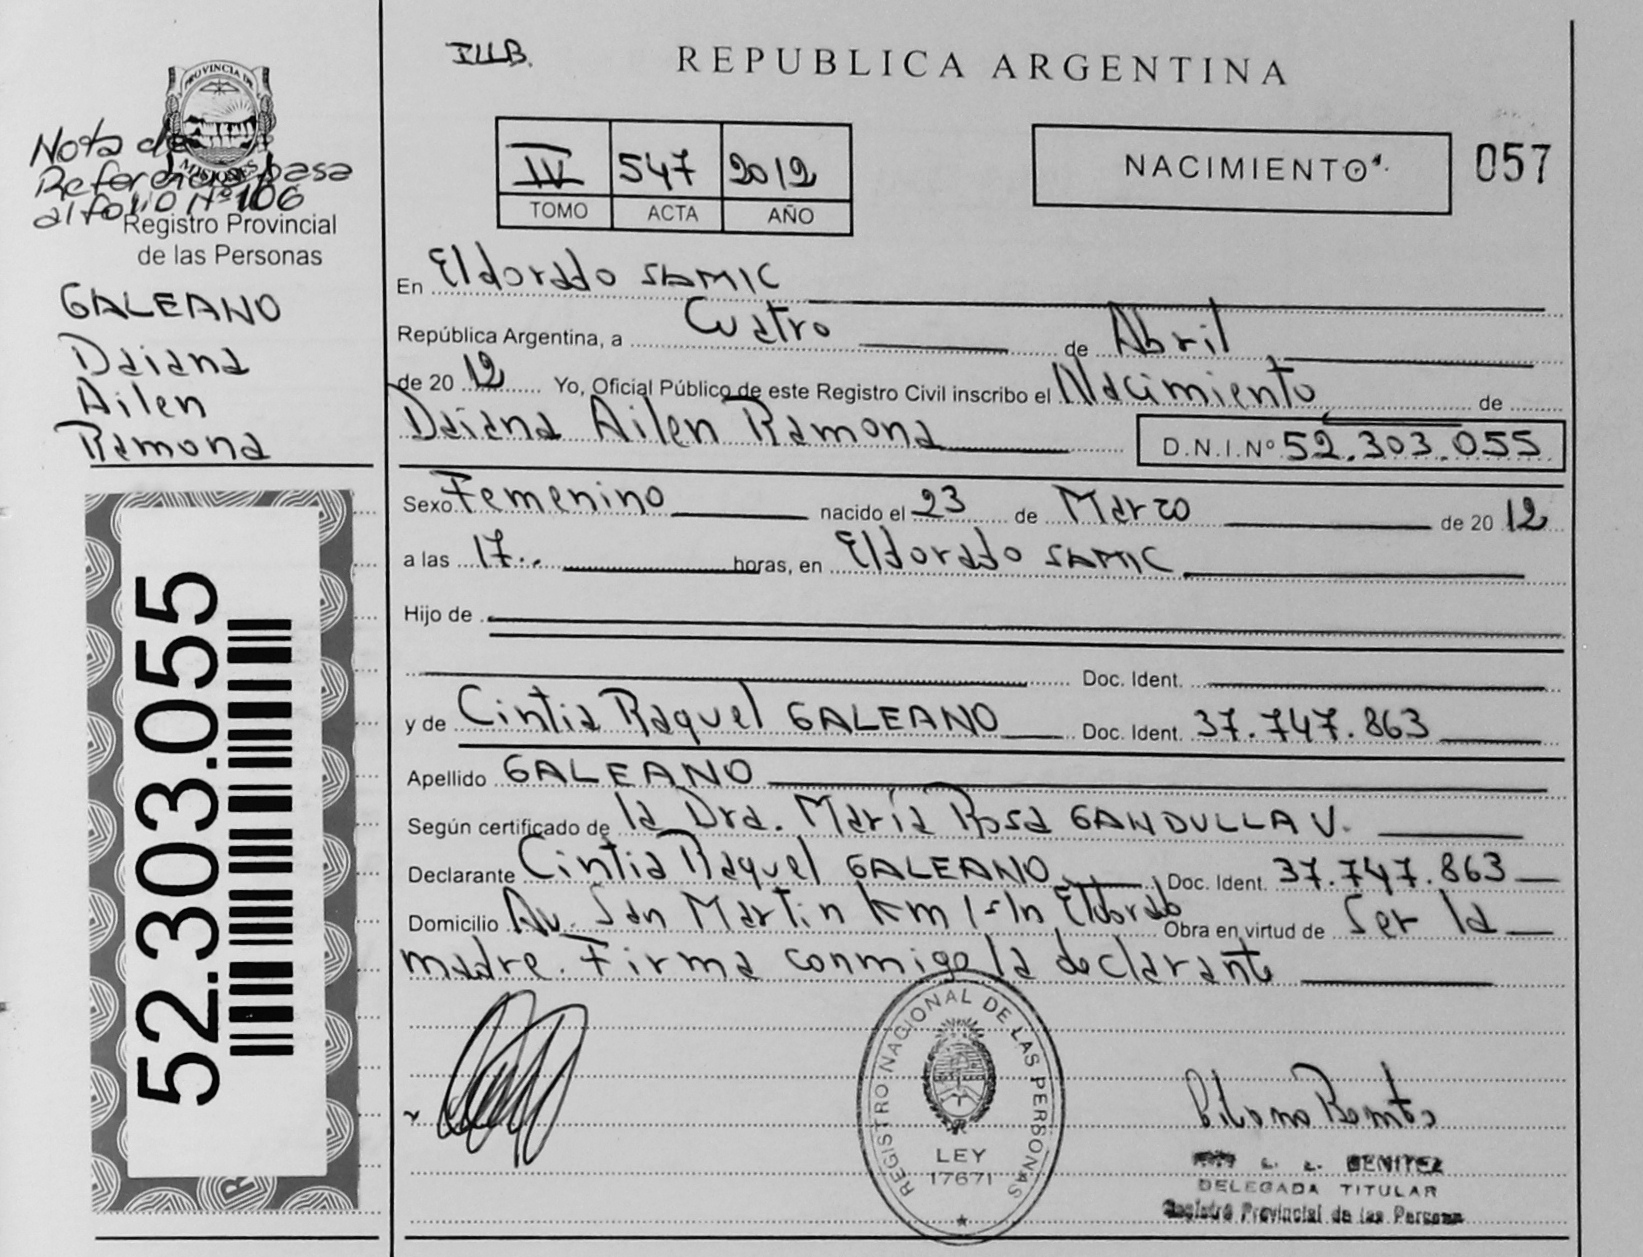 PROVINCIA DE
MISIONES
Nota de
Referencia pasa
al folio Nº 106
Registro Provincial
de las Personas
GALEANO
Daiana
Ailen
Ramona
52.303.055
REPUBLICA ARGENTINA
IV 547 2012
TOMO ACTA AÑO
NACIMIENTO
057
En Eldorado SAMIC
República Argentina, a Cuatro de Abril
de 2012 Yo, Oficial Público de este Registro Civil inscribo el Nacimiento de
Daiana Ailen Ramona D.N.I.Nº 52.303.055
Sexo Femenino nacido el 23 de Marzo de 2012
a las 17.. horas, en Eldorado SAMIC
Hijo de
Doc. Ident.
y de Cintia Raquel GALEANO Doc. Ident. 37.747.863
Apellido GALEANO
Según certificado de la Dra. María Rosa GANDULLA V.
Declarante Cintia Raquel GALEANO Doc. Ident. 37.747.863
Domicilio Av. San Martin Km 1 s/n Eldorado Obra en virtud de Ser la
madre. Firma conmigo la declarante
REGISTRO NACIONAL DE LAS PERSONAS
LEY
17671
BENITEZ
DELEGADA TITULAR
Registro Provincial de las Personas